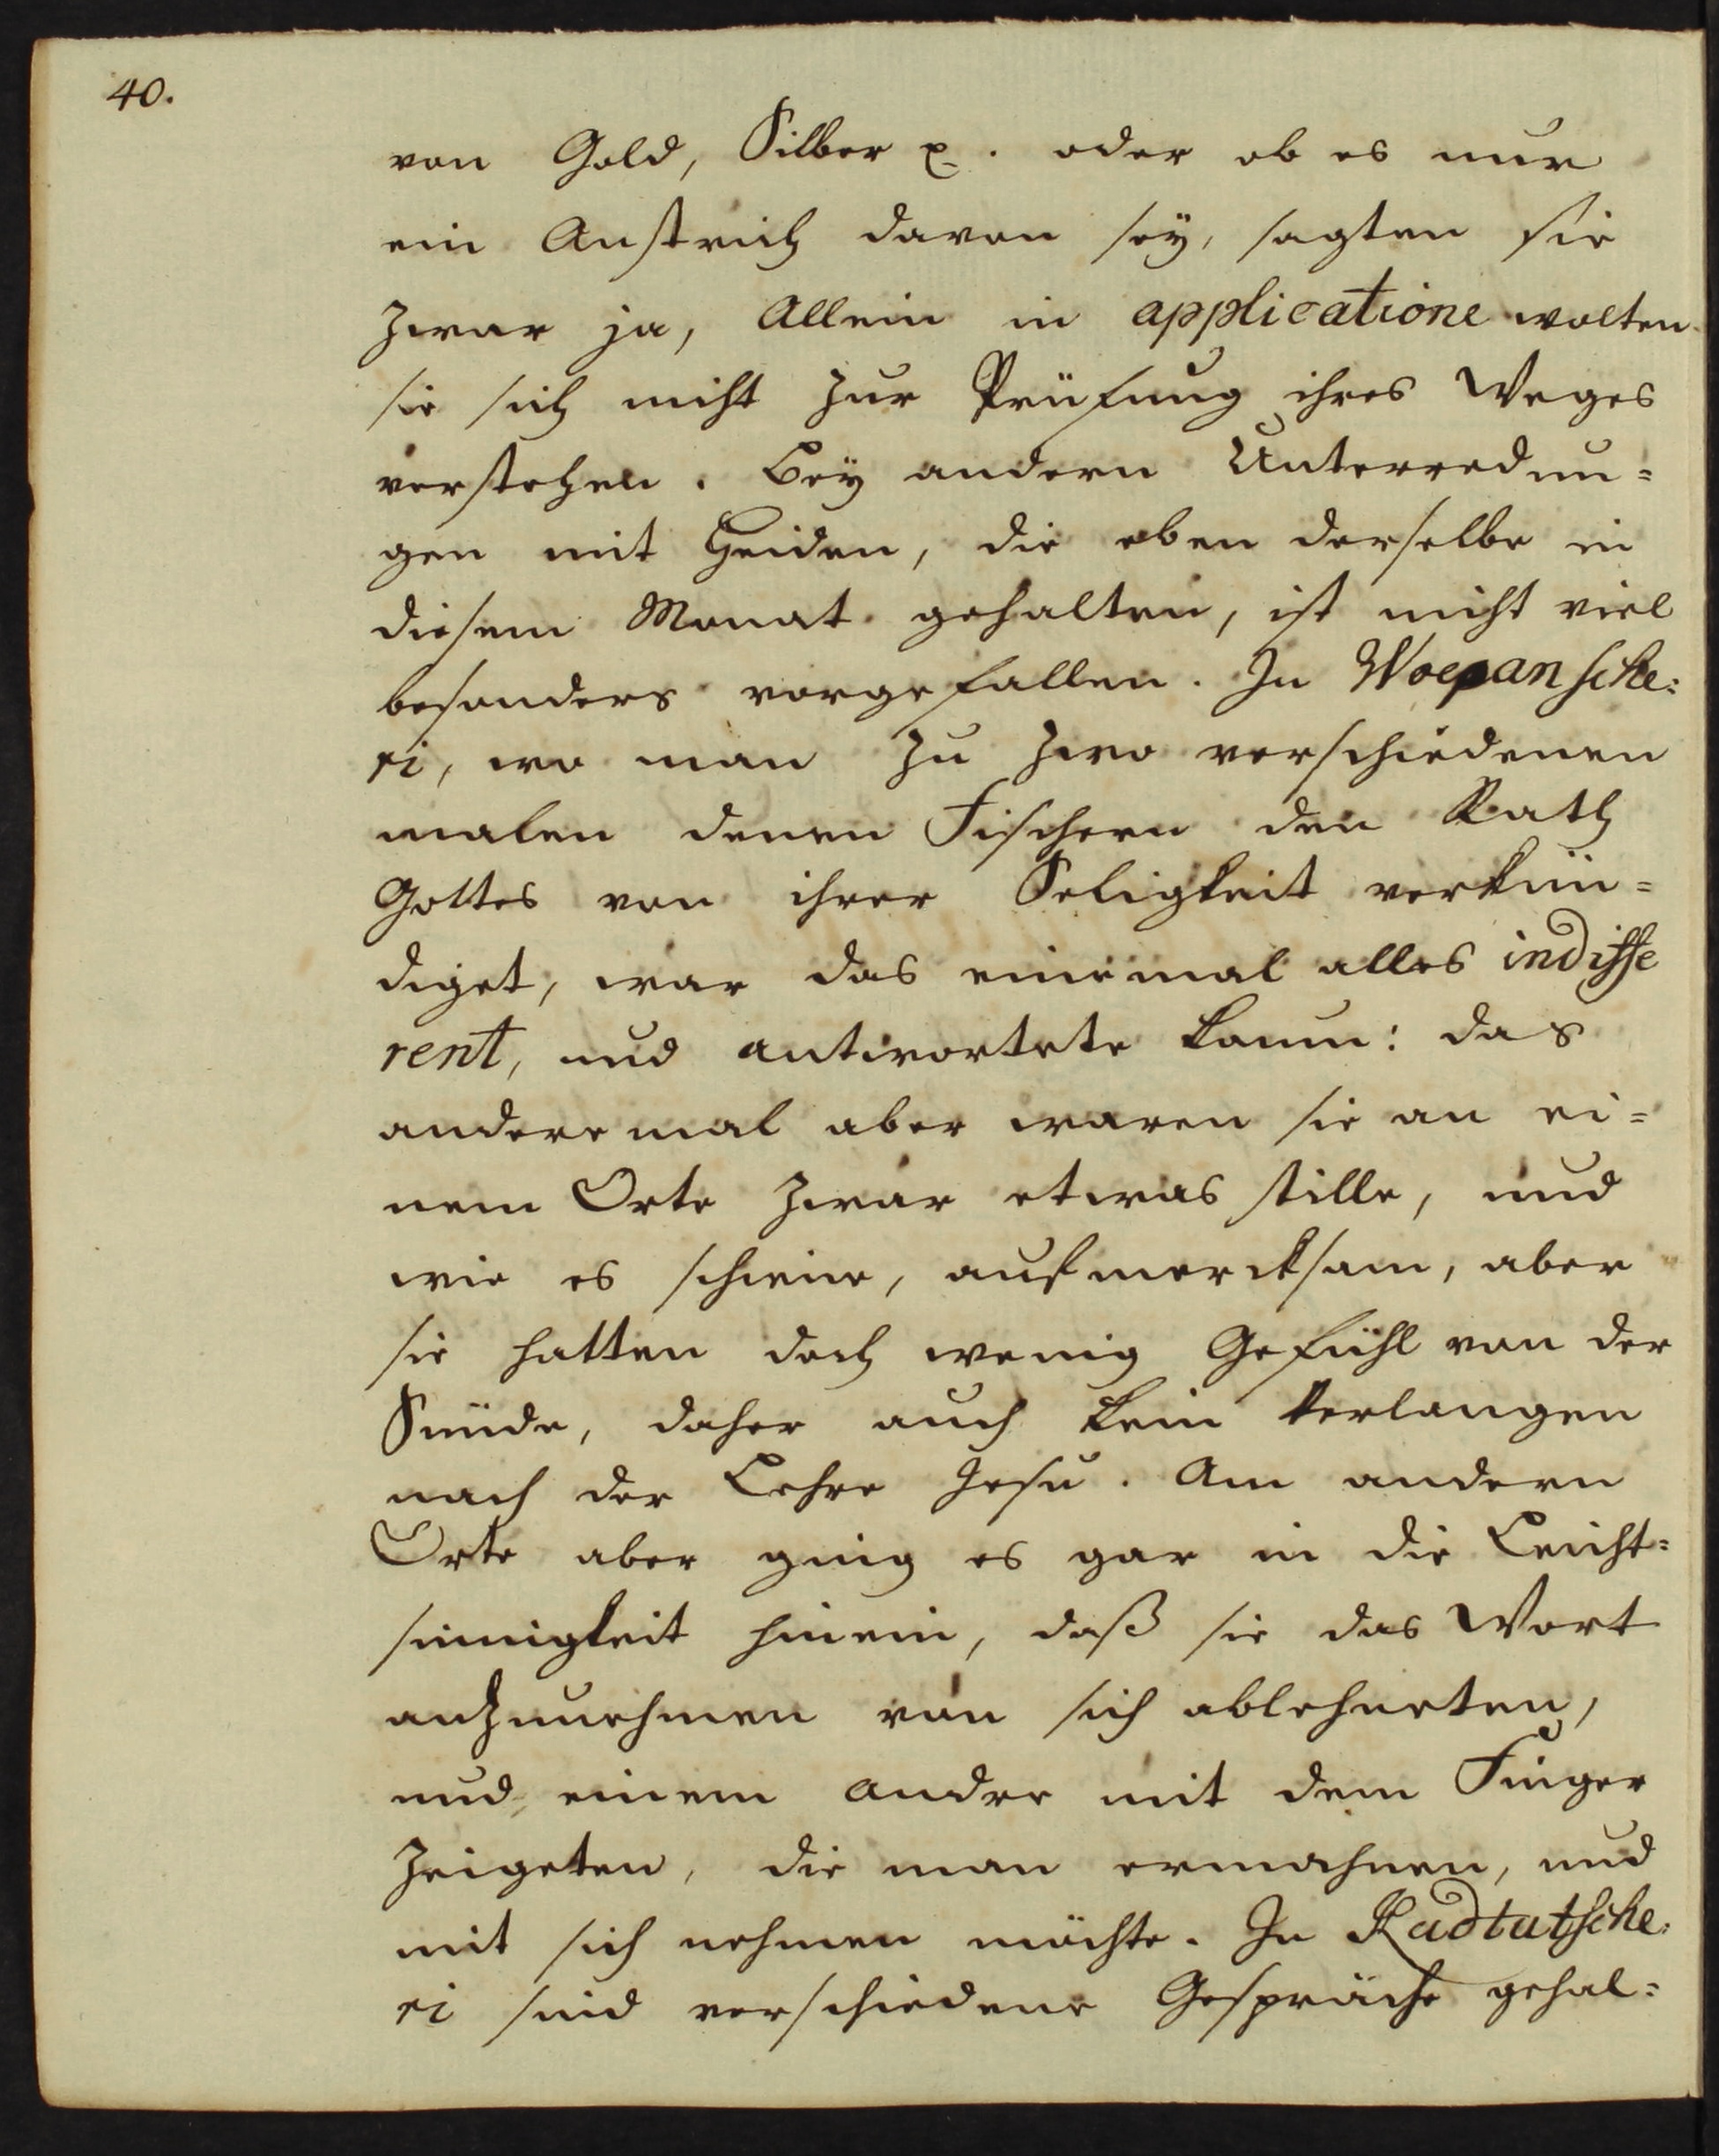 40.
von Gold, Silber ꝛc. oder ob es nur
ein Anstrich davon sey, sagten sie
zwar ja, Allein in applicatione wolten
sie sich nicht zur Prüfung ihres Weges
verstehen. Bey andern Unterredun=
gen mit Heiden, die eben derselbe in
diesem Monat gehalten, ist nicht viel
besonders vorgefallen. In Woepansche=
ri, wo man zu zwo verschiedenen
malen denen Fischern den Rath
Gottes von ihrer Seligkeit verkün=
diget, war das eine mal alles indiffe
rent, und antwortete kaum: das
andere mal aber waren sie an ei=
nem Orte zwar etwas stille, und
wie es schiene, aufmercksam, aber
sie hatten doch wenig Gefühl von der
Sünde, daher auch kein Verlangen
nach der Lehre Jesu. Am andern
Orte aber ging es gar in die Leicht=
sinnigkeit hinein, daß sie das Wort
anzunehmen von sich ablehneten,
und einem andre mit dem Finger
zeigeten, die man ermahnen, und
mit sich nehmen möchte. In Kudtutsche=
ri sind verschiedene Gespräche gehal=